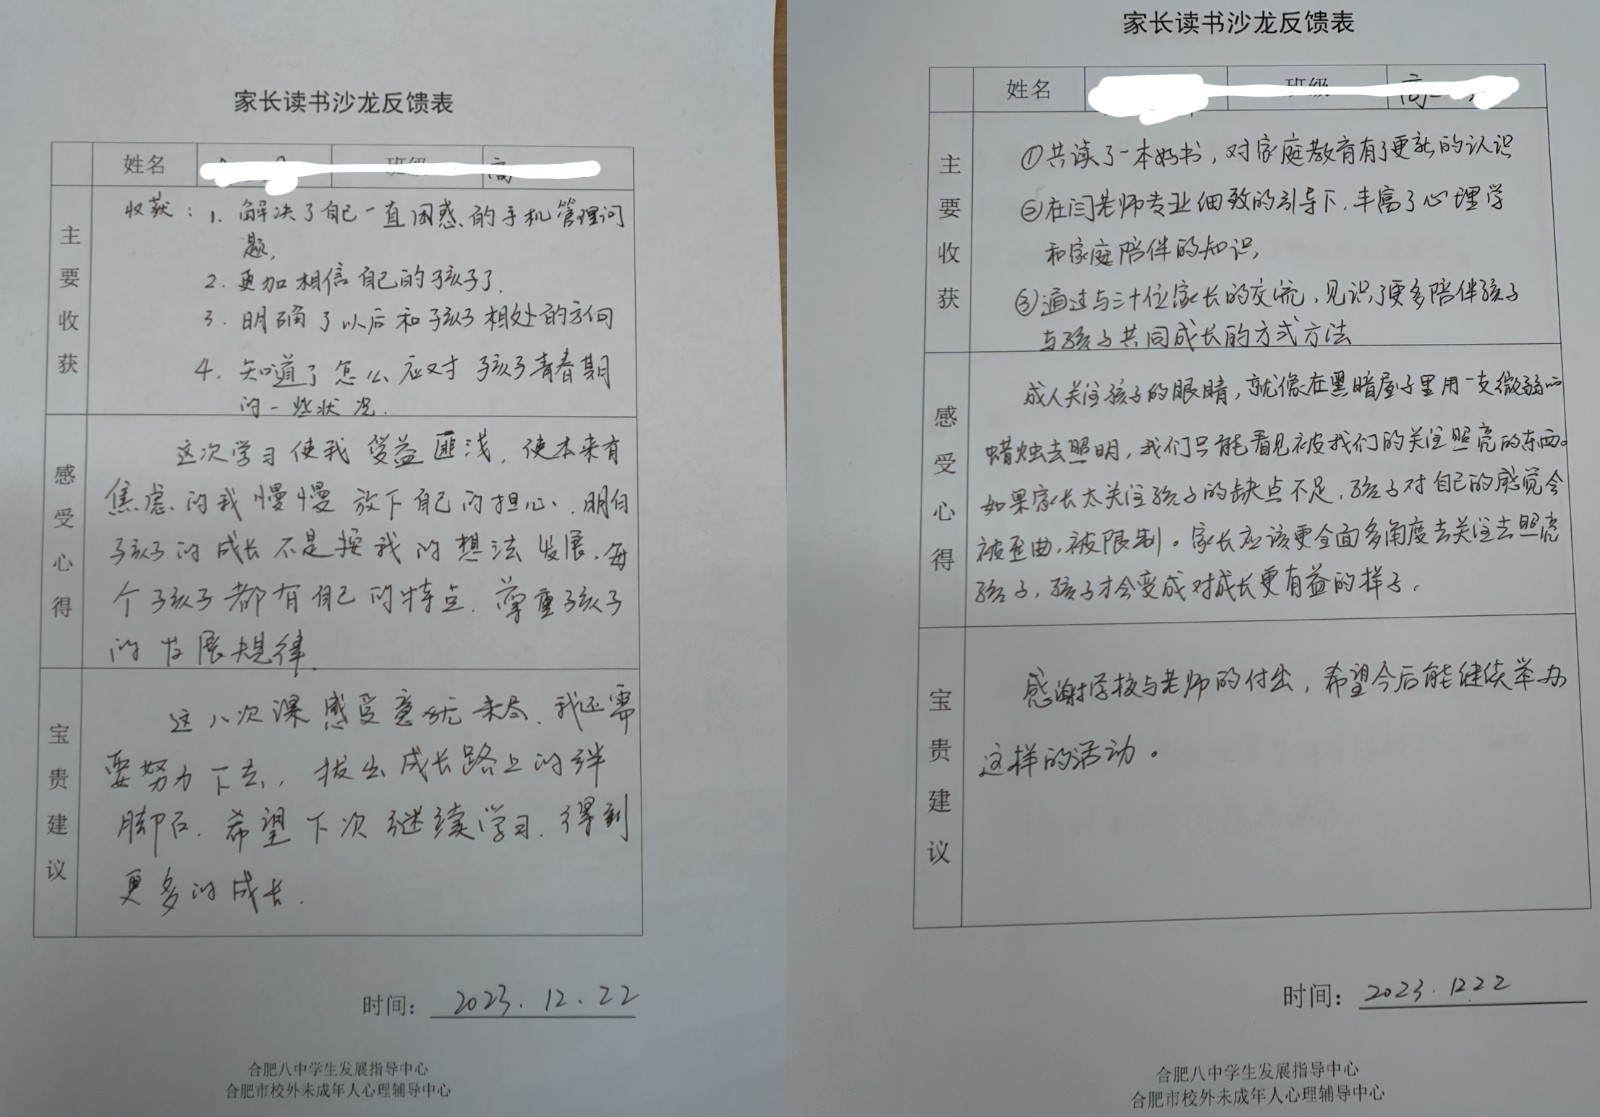 家长读书沙龙反馈表
姓名 班级 高
主要收获
收获：1. 解决了自己一直困惑的手机管理问
题，
2. 更加相信自己的孩子了.
3. 明确了以后和孩子相处的方向
4. 知道了怎么应对孩子青春期
的一些状况.
感受心得
这次学习使我受益匪浅，使本来有
焦虑的我慢慢放下自己的担心、明白
孩子的成长不是按我的想法发展.每
个孩子都有自己的特点.尊重孩子
的发展规律.
宝贵建议
这八次课感受意犹未尽.我还需
要努力下去，拔出成长路上的绊
脚石.希望下次继续学习.得到
更多的成长.
时间：2023.12.22
合肥八中学生发展指导中心
合肥市校外未成年人心理辅导中心
家长读书沙龙反馈表
姓名 班级 高二
主要收获
①共读了一本好书，对家庭教育有了更新的认识
②在闫老师专业细致的引导下，丰富了心理学
和家庭陪伴的知识，
③通过与三十位家长的交流，见识了更多陪伴孩子
与孩子共同成长的方式方法
感受心得
成人关注孩子的眼睛，就像在黑暗屋子里用一支微弱的
蜡烛去照明，我们只能看见被我们的关注照亮的东西。
如果家长太关注孩子的缺点不足，孩子对自己的感觉会
被歪曲，被限制。家长应该更全面多角度去关注去照亮
孩子，孩子才会变成对成长更有益的样子。
宝贵建议
感谢学校与老师的付出，希望今后能继续举办
这样的活动。
时间：2023.12.22
合肥八中学生发展指导中心
合肥市校外未成年人心理辅导中心